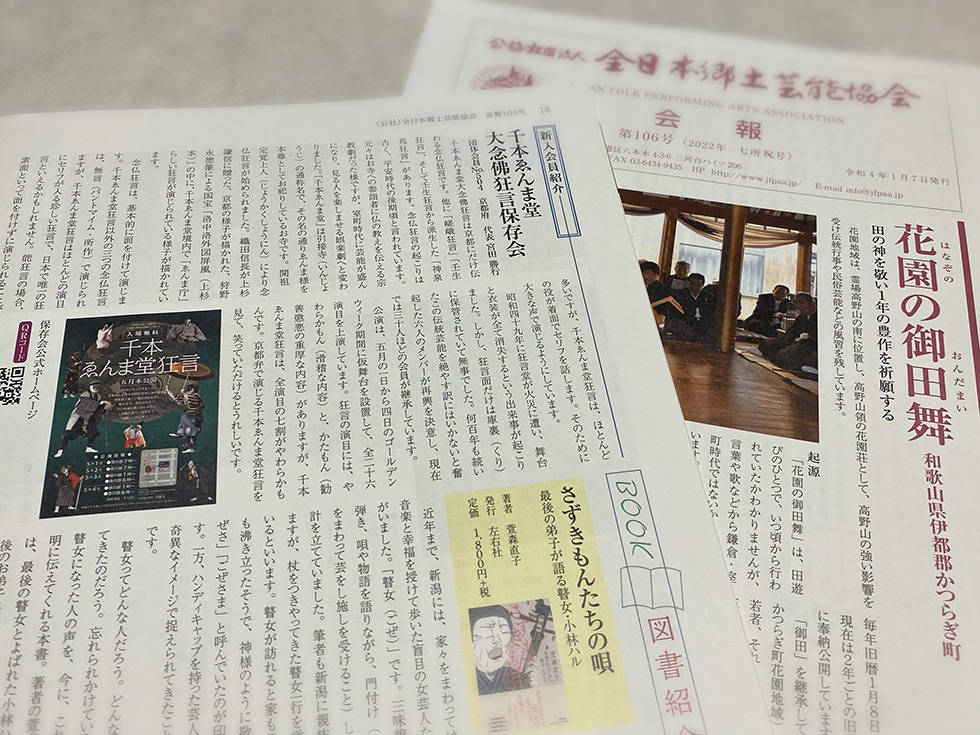 公益社団法人 全日本郷土芸能協会
AN FOLK PERFORMING ARTS ASSOCIATION
会報
第106号（2022年 七所祝号）
港区六本木4-3-6 三河台ハイツ206
FAX 03-6434-9435 HP http://www.jfpaa.jp/ E-mail info@jfpaa.jp
令和4年1月7日発行
花園の御田舞
はなぞの おんだまい
和歌山県伊都郡かつらぎ町
田の神を敬い1年の豊作を祈願する
花園地域は、霊場高野山の南に位置し、高野山領の花園荘として、高野山の強い影響を
受けた伝統行事や民俗芸能などの風習を残しています。
起源
「花園の御田舞」は、田遊
びのひとつで、いつ頃から行わ
れていたかわかりませんが、
言葉や歌などから鎌倉・室
町時代ではない
毎年旧暦1月8日
現在は2年ごとの旧
に奉納公開しています
「御田」を継承して
かつらぎ町花園地域
若者、それ
〈公社〉全日本郷土芸能協会 会報106号 18
新入会員紹介
千本ゑんま堂
大念佛狂言保存会
団体会員No.604 京都府 代表 宮田勝行
千本ゑんま堂大念佛狂言は京都にだけ伝
わる念仏狂言です。他に「嵯峨狂言」「壬生
狂言」、そして壬生狂言から派生した「神泉
苑狂言」があります。念仏狂言の起こりは
古く、平安時代の後期頃と言われています。
元々はお寺への参詣者に仏の教えを伝える宗
教劇だった様ですが、室町時代に芸能が盛ん
になり、見る人を楽しませる娯楽劇へと変わ
りました。「千本ゑんま堂」は引接寺（いんじょ
うじ）の通称名で、その名の通りゑんま様を
本尊としてお祀りしているお寺です。開祖
定覚上人（じょうかくしょうにん）により念
仏狂言が始められました。織田信長が上杉
謙信に贈った、京都の様子が描かれた、狩野
永徳筆による国宝「洛中洛外図屏風（上杉
本）」の中に千本ゑんま堂境内で「ゑんま庁」
らしい狂言が演じられている様子が描かれてい
ます。
念仏狂言は、基本的に面を付けて演じま
す。千本ゑんま堂狂言以外の三つの念仏狂言
は、無言（パントマイム・所作）で演じられ
ますが、千本ゑんま堂狂言はほとんどの演目
にセリフが入る珍しい狂言で、日本で唯一の狂
言といえるかもしれません。能狂言の場合、
素面といって面を付けずに演じられること
多いですが、千本ゑんま堂狂言は、ほとんど
の役が着面でセリフを話します。そのために
大きな声で演じるようにしています。
昭和四十九年に狂言堂が火災に遭い、舞台
と衣裳が全て消失するという出来事が起こり
ました。しかし、狂言面だけは庫裏（くり）
に保管されていて無事でした。何百年も続い
たこの伝統芸能を絶やす訳にはいかないと奮
起した六人のメンバーが再興を決意し、現在
では三十人ほどの会員が継承しています。
公演は、五月の一日から四日のゴールデン
ウィーク期間に仮舞台を設置して、全二十六
演目を上演しています。狂言の演目には、や
わらかもん（滑稽な内容）と、かたもん（勧
善懲悪の重厚な内容）がありますが、千本
ゑんま堂狂言は、全演目の七割がやわらかも
んです。京都弁で演じる千本ゑんま堂狂言を
見て、笑っていただけるとうれしいです。
入場無料
千本
ゑんま堂狂言
五月本公演
QRコード
保存会公式ホームページ
BOOK
図書紹介
さずきもんたちの唄
最後の弟子が語る瞽女・小林ハル
著者 萱森直子
発行 左右社
定価 1,800円+税
近年まで、新潟には、家々をまわっては
音楽と幸福を授けて歩いた盲目の女芸人た
がいました。「瞽女（ごぜ）」です。三味
弾き、唄や物語を語りながら、門付け（
をまわって芸をし施しを受けること）し
計を立てていました。筆者も新潟に親族
ますが、杖をつきやってきた瞽女一行を
いるといいます。瞽女が訪れると家も
も沸き立ったそうで、神様のように敬
ぜさ」「ごぜさま」と呼んでいたのが印
す。一方、ハンディキャップを持った芸人
奇異なイメージで捉えられてきたこ
です。
瞽女ってどんな人だろう。どんな
てきたのだろう。忘れられかけてい
瞽女になった人の声を、今に、こ
明に伝えてくれる本書。著者の萱
は、最後の瞽女とよばれた小林
後のお弟子